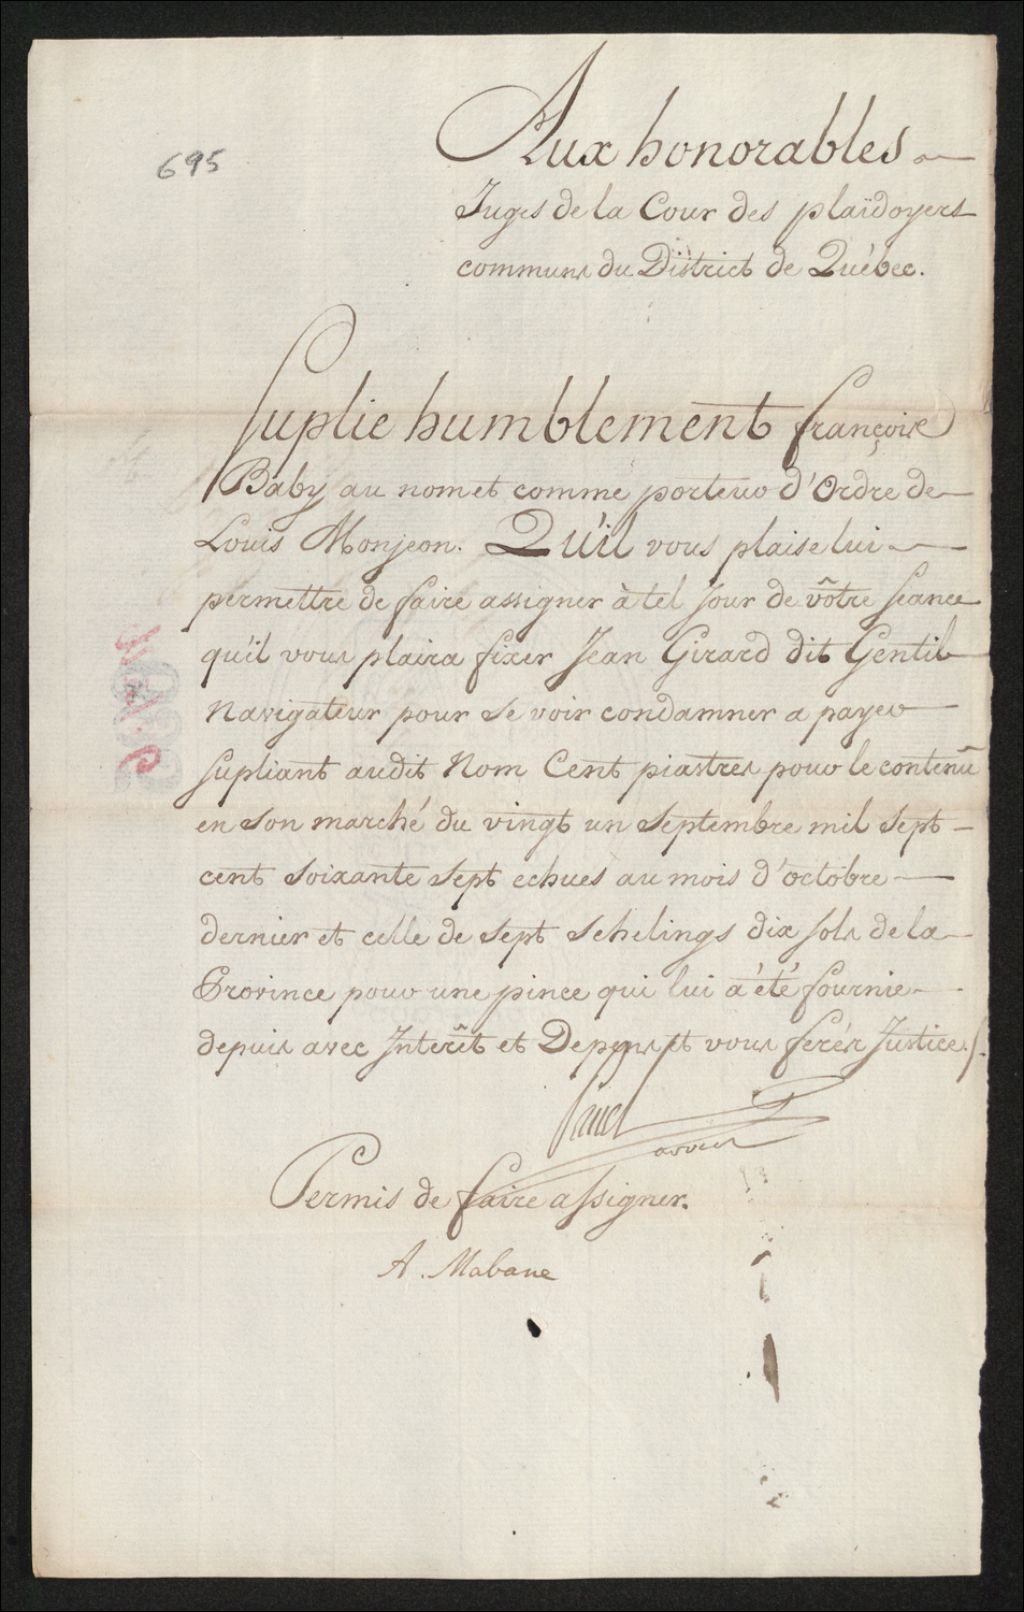 695
Aux honorables
Juges de la Cour des plaïdoyers
communs du District de Québec.
Suplie humblement françois
Baby au nom et comme porteur d'Ordre de
Louis Monjeon. Qu'il vous plaise lui
permettre de faire assigner à tel Jour de vôtre Seance
qu'il vous plaira fixer Jean Girard dit Gentil
Navigateur pour se voir condamner a payer
Supliant audit Nom Cent piastres pour le contenû
en son marché du vingt un Septembre mil Sept
cent soixante sept echues au mois d'octobre
dernier et celle de sept schelings dix sols de la
Province pour une pince qui lui a été fournie
depuis avec Interêt et Depens et vous ferés Justice./.
Permis de faire assigner.
A. Mabane